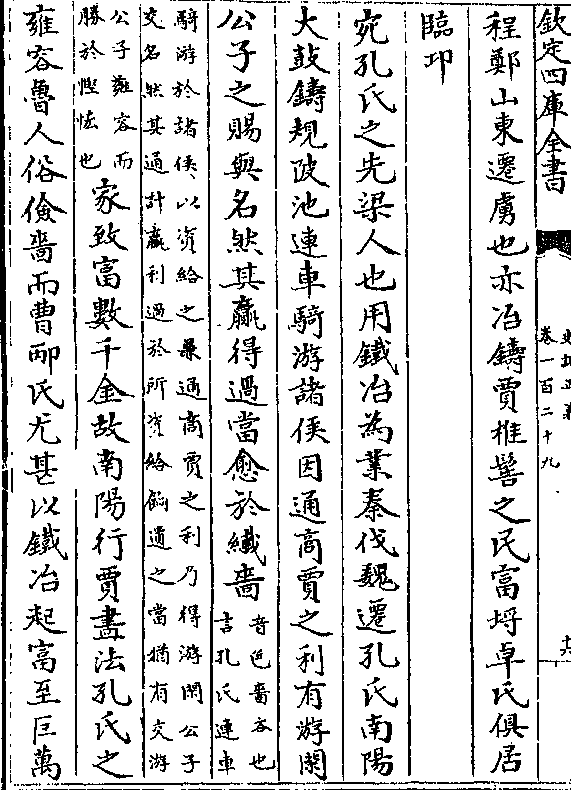 欽定四庫全書
史記正義
卷一百二十九
十六
程鄭山東遷虜也亦冶鑄賈椎髻之民富埒卓氏俱居
臨邛
宛孔氏之先梁人也用鐵冶為業秦伐魏遷孔氏南陽
大鼓鑄規陂池連車騎游諸侯因通商賈之利有游閑
公子之賜與名然其贏得過當愈於纖嗇
音色嗇吝也
言孔氏連車
騎游於諸侯以資給之兼通商賈之利乃得游閑公子
交名然其通計贏利過於所資給餉遺之當猶有交游
公子雍容而
勝於慳悋也
家致富數千金故南陽行賈盡法孔氏之
雍容魯人俗儉嗇而曹邴氏尤甚以鐵冶起富至巨萬